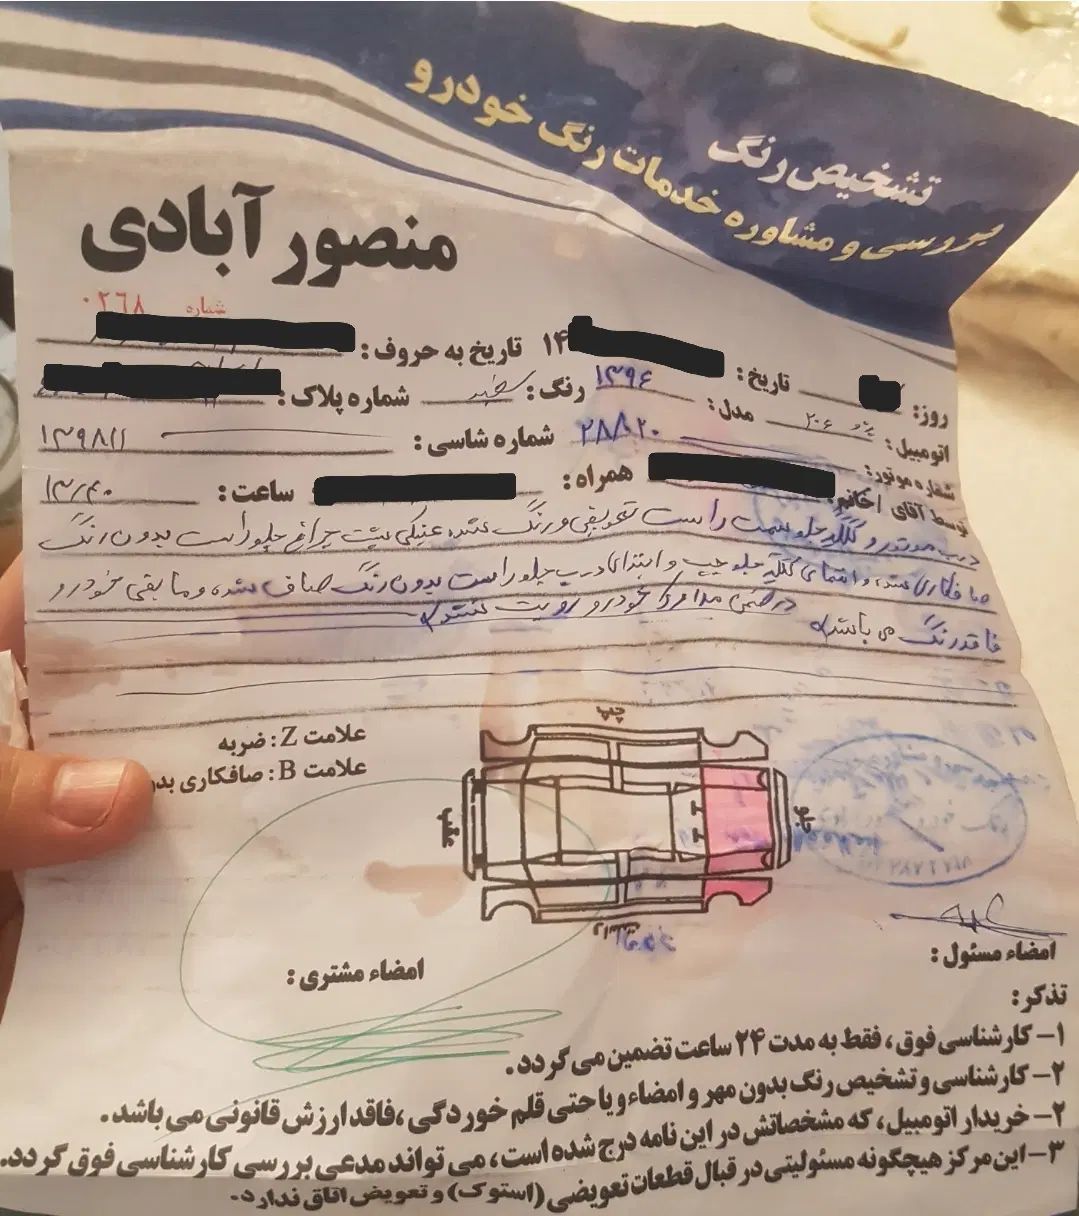 تشخیص رنگ
بررسی و مشاوره خدمات رنگ خودرو
منصور آبادی
شماره ۰۲۶۸
روز: تاریخ: ۱۴ تاریخ به حروف:
اتومبیل: پژو ۲۰۶ مدل: ۱۳۹۶ رنگ: سفید شماره پلاک:
شماره موتور: ۲۸۸۲۰ شماره شاسی: ۱۳۹۸۱۱
توسط آقای / خانم: همراه: ساعت: ۱۳/۴۰
درب موتور و گلگیر جلو سمت راست تعویض و رنگ شده، عینکی پشت چراغ جلو راست بدون رنگ
صافکاری شده، و انتهای گلگیر جلو چپ و ابتدای درب جلو راست بدون رنگ صاف شده، و مابقی خودرو
فاقد رنگ می باشد در ضمن خودرو رویت شد
علامت Z: ضربه
علامت B: صافکاری
چپ
جلو
عقب
راست
امضاء مسئول:
امضاء مشتری:
تذکر:
۱- کارشناسی فوق، فقط به مدت ۲۴ ساعت تضمین می گردد.
۲- کارشناسی و تشخیص رنگ بدون مهر و امضاء و یا حتی قلم خوردگی، فاقد ارزش قانونی می باشد.
۲- خریدار اتومبیل، که مشخصاتش در این نامه درج شده است، می تواند مدعی بررسی کارشناسی فوق گردد.
۳- این مرکز هیچگونه مسئولیتی در قبال قطعات تعویضی (استوک) و تعویض اتاق ندارد.